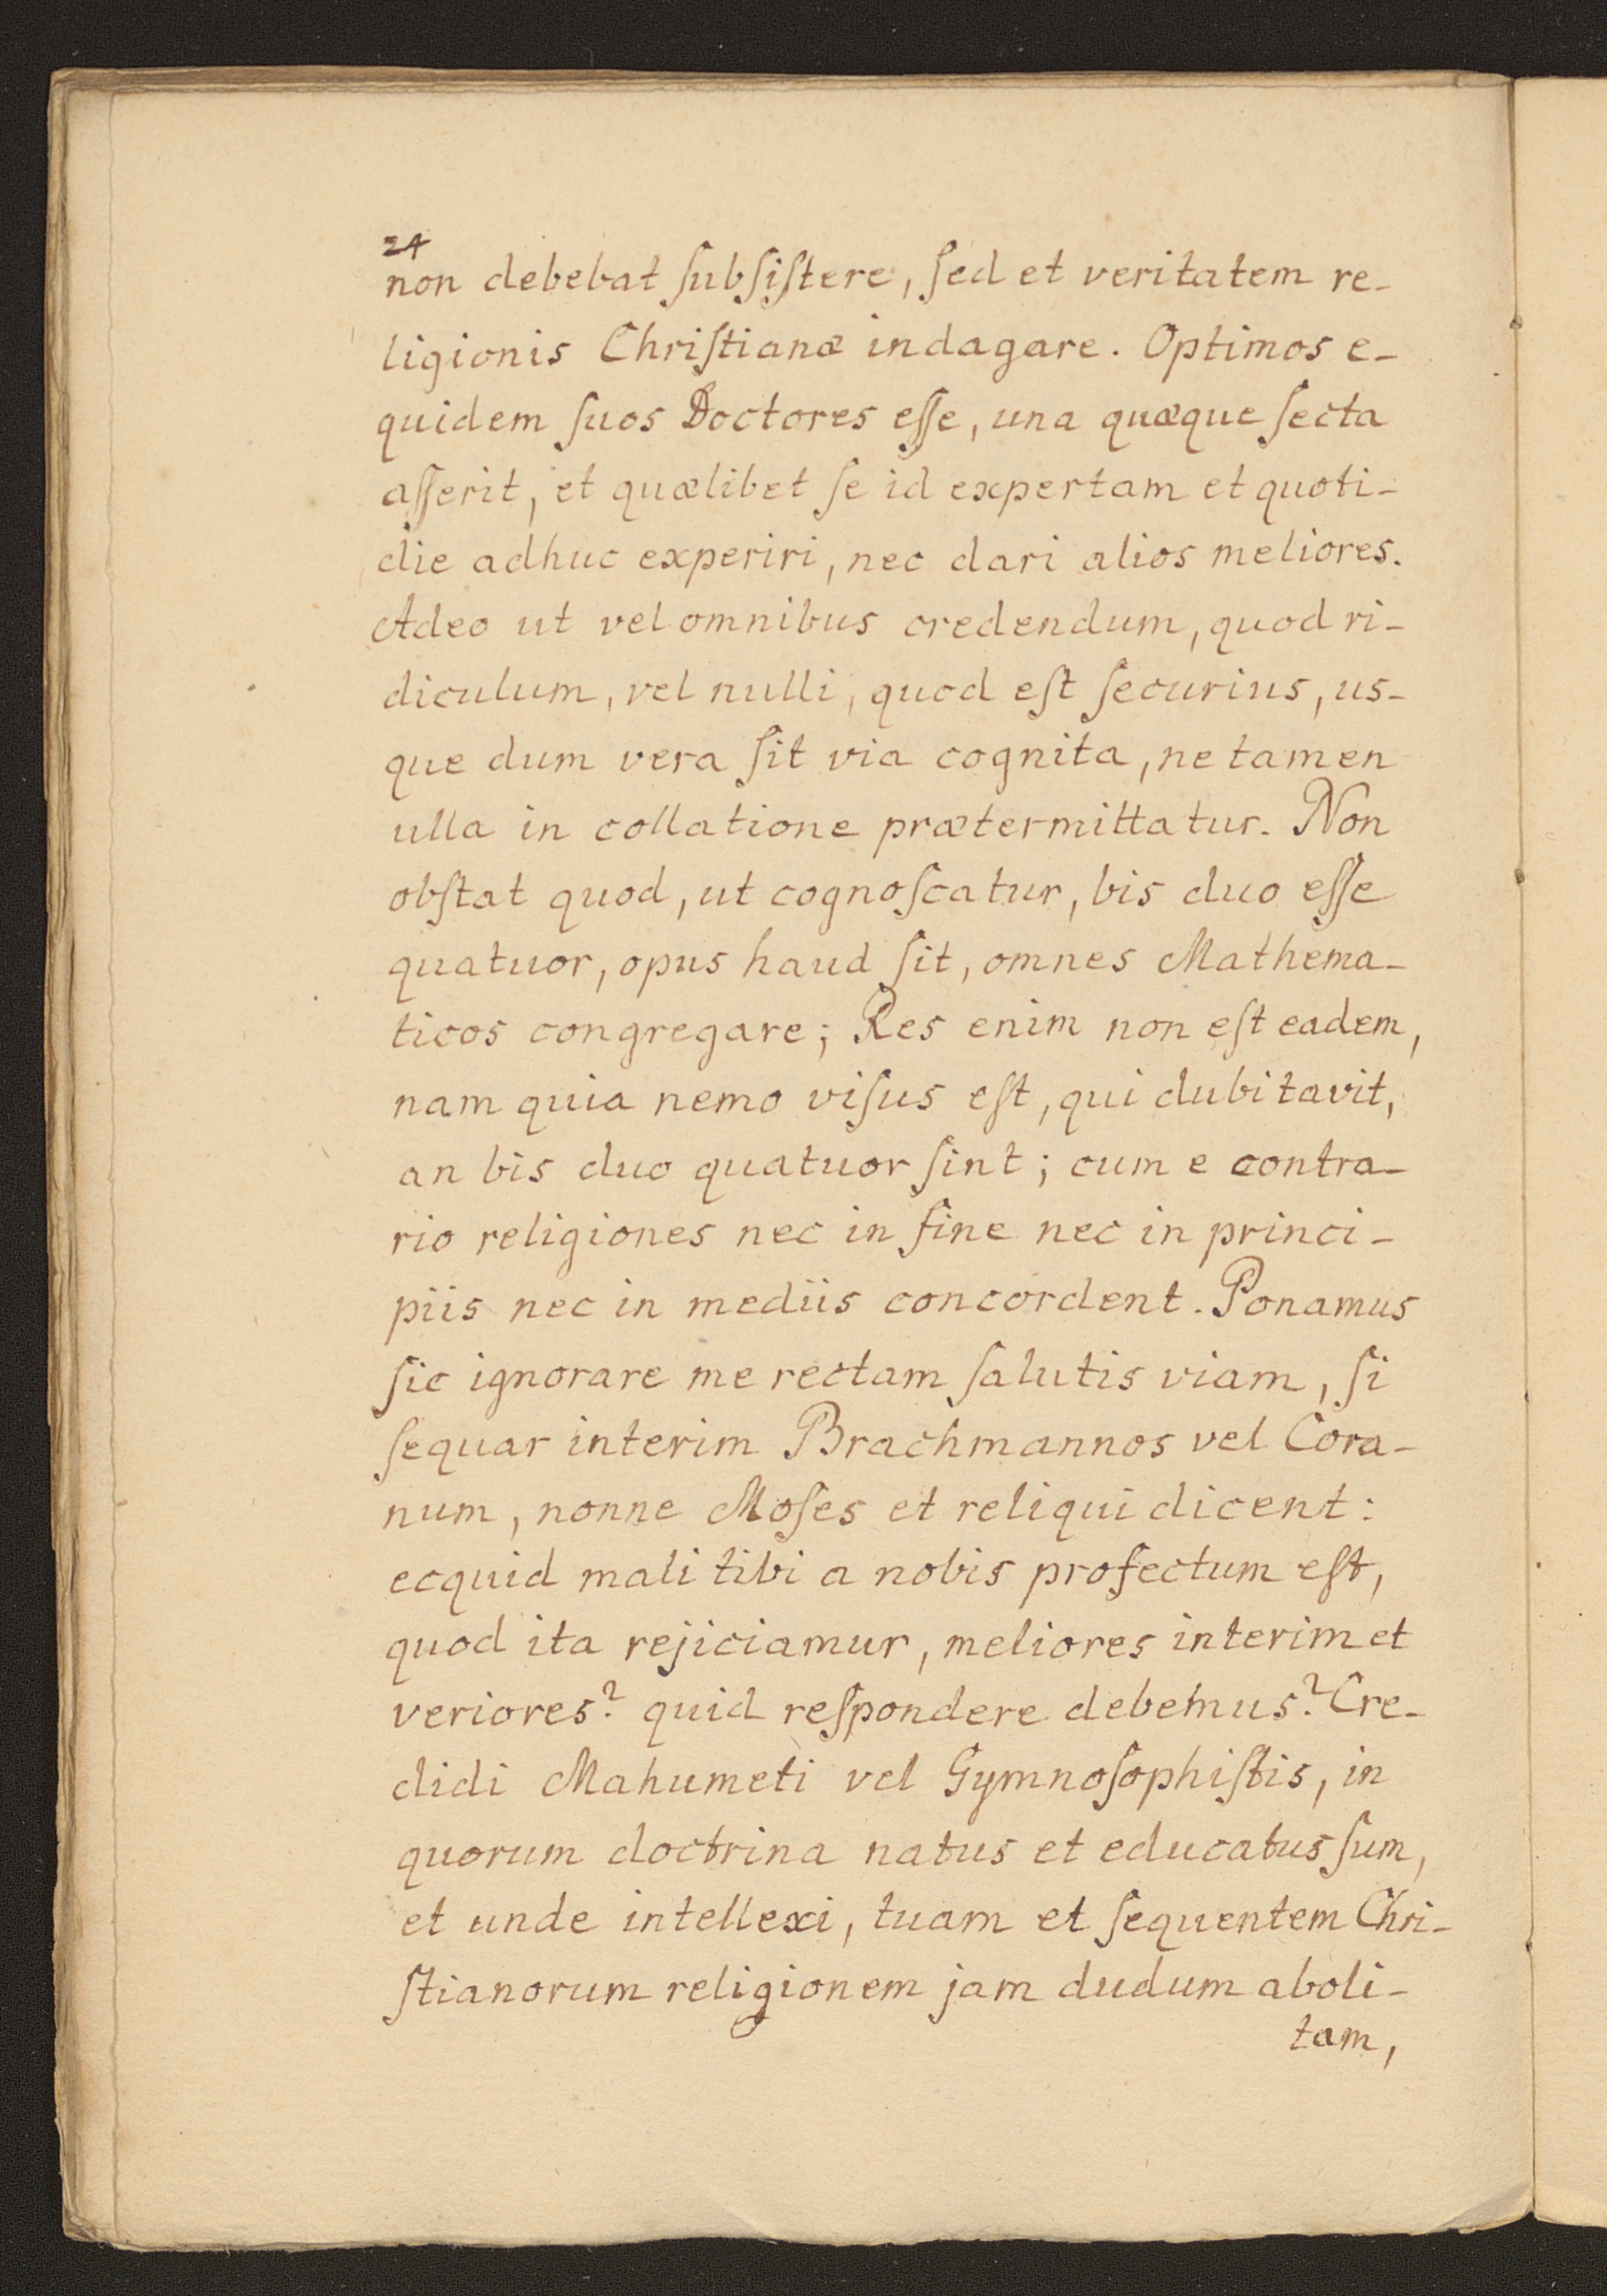 24
non debebat ſubſiſtere, ſed et veritatem re-
ligionis Chriſtianæ indagare. Optimos e-
quidem ſuos Doctores eſſe, una quæque ſecta
aſſerit, et quælibet ſe id expertam et quoti-
die adhuc experiri, nec dari alios meliores.
Adeo ut vel omnibus credendum, quod ri-
diculum, vel nulli, quod eſt ſecurius, us-
que dum vera ſit via cognita, ne tamen
ulla in collatione prætermittatur. Non
obſtat quod, ut cognoſcatur, bis duo eſſe
quatuor, opus haud ſit, omnes Mathema-
ticos congregare; Res enim non eſt eadem,
nam quia nemo viſus eſt, qui dubitavit,
an bis duo quatuor ſint; cum e contra-
rio religiones nec in fine nec in princi-
piis nec in mediis concordent. Ponamus
ſic ignorare me rectam ſalutis viam, ſi
ſequar interim Brachmannos vel Cora-
num, nonne Moſes et reliqui dicent:
ecquid mali tibi a nobis profectum eſt,
quod ita rejiciamur, meliores interim et
veriores? quid reſpondere debemus? Cre-
didi Mahumeti vel Gymnoſophiſtis, in
quorum doctrina natus et educatus ſum,
et unde intellexi, tuam et ſequentem Chri-
ſtianorum religionem jam dudum aboli-
tam,